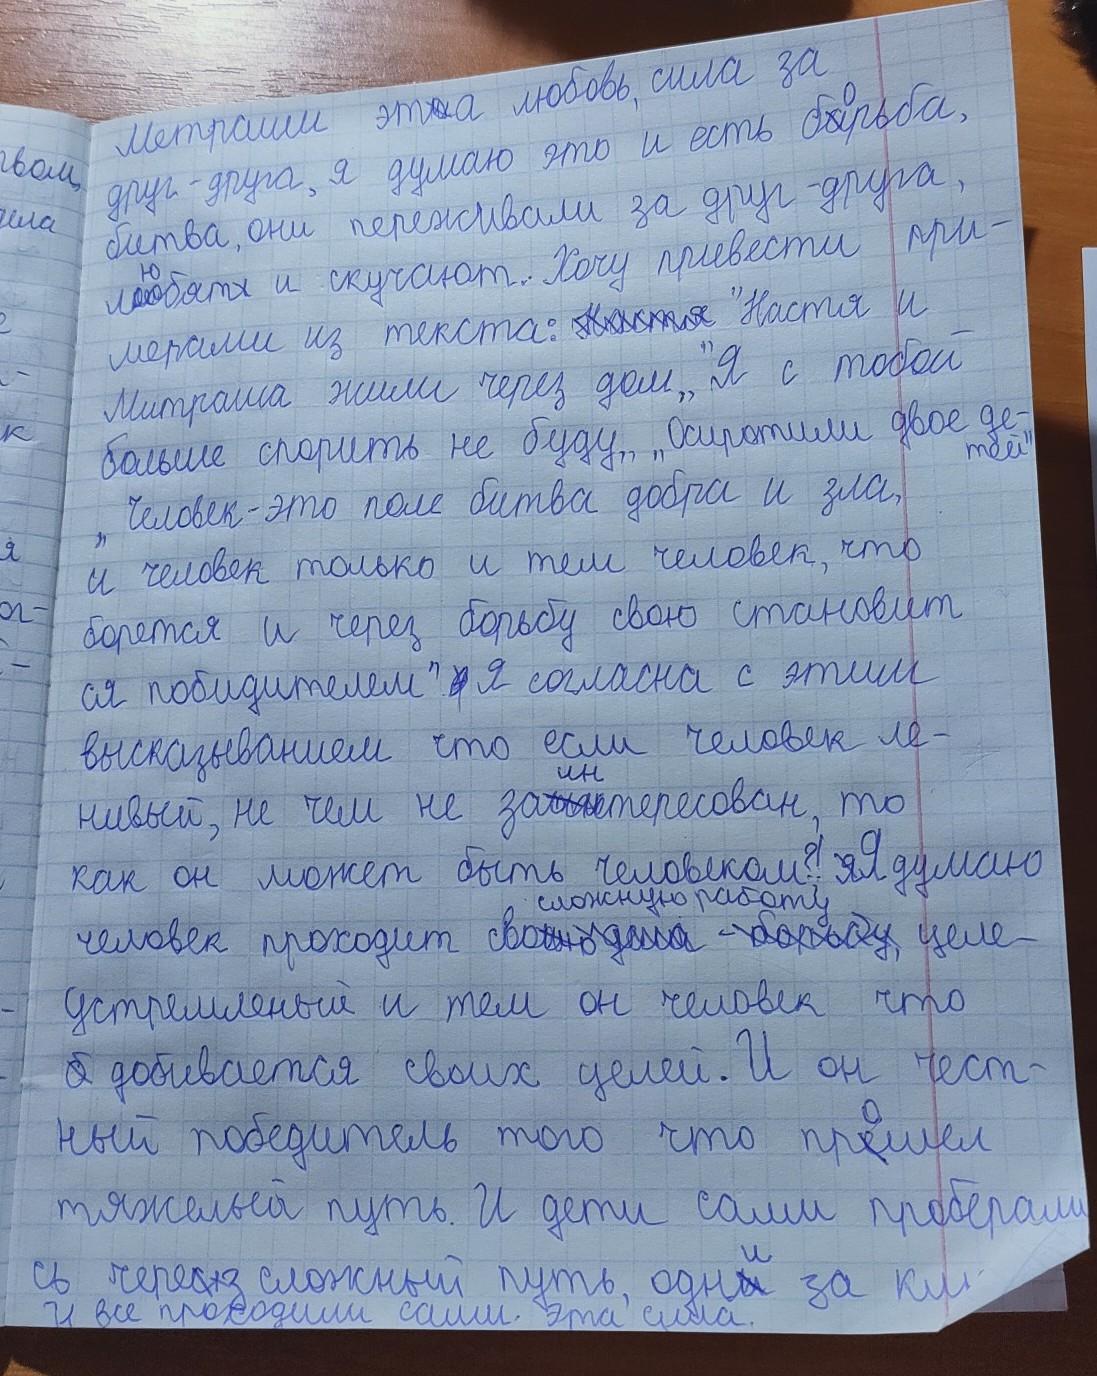 Метраши эта любовь, сила за
друг-друга, я думаю это и есть борьба,
битва, они переживали за друг-друга,
любят и скучают. Хочу привести при-
мерами из текста: "Настя и
Митраша жили через дом„ "Я с тобой
больше спорить не буду„ „Осиротили двое де-
тей"
„Человек-это поле битва добра и зла,
и человек только и тем человек, что
борется и через борьбу свою становит
ся побидителем" Я согласна с этим
высказыванием что если человек ле-
нивый, не чем не заинтересован, то
как он может быть человеком?! Я думаю
человек проходит сложную работу, целе-
устремленый и тем он человек что
добивается своих целей. И он чест-
ный победитель того что прошел
тяжелый путь. И дети сами проберали
сь через сложный путь, одни за
И все проходили сами. Эта сила.